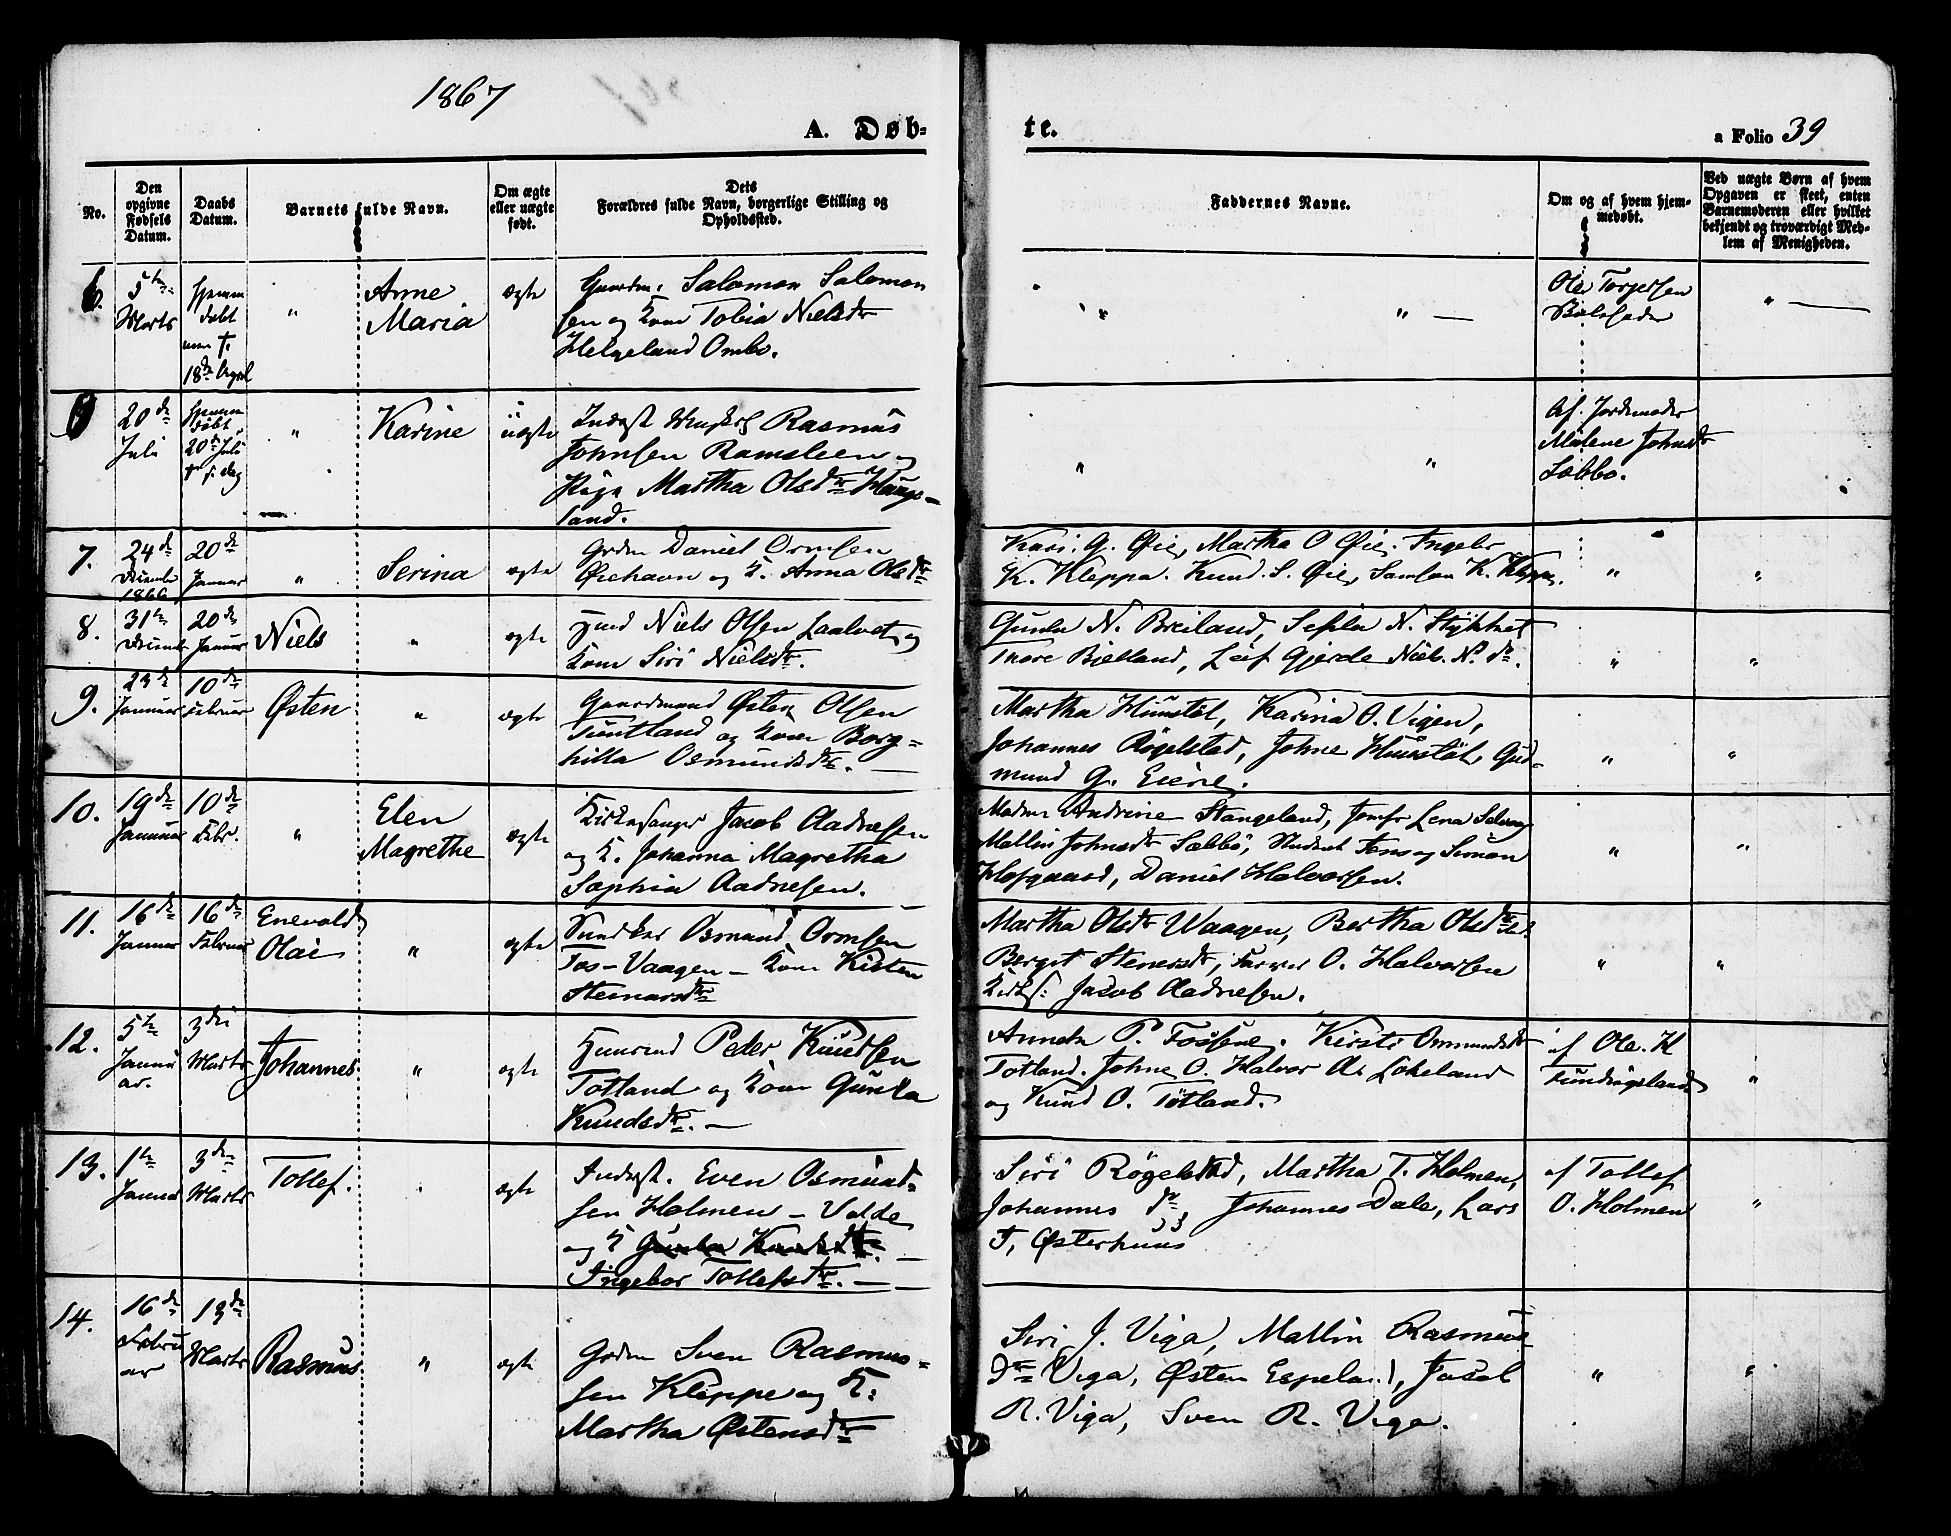 1867
A. Døb-
te.
a Folio 39
No.
Den
opgivne
Fødsels
Datum.
Daabs
Datum.
Barnets fulde Navn.
Om ægte
eller uægte
født.
Dets
Forældres fulde Navn, borgerlige Stilling og
Opholdssted.
Faddernes Navne.
Om og af hvem hjem-
medøbt.
Ved uægte Børn af hvem
Opgaven er skeet, enten
Barnemoderen eller hvilket
bekjendt og troværdigt Med-
lem af Menigheden.
6.
5te
Marts
hjemm
døbt
18de April
"
Anne
Maria
ægte
Gaardm. Salomon Salomon
sen og Kone Tobia Nielsdtr
Helgeland Ombo.
" "
Ole Torgersen
"
20de
Juli
hjemme
døbt
20de Juli
"
Karine
uægte
Rasmus
Johnsen Ramsleen og
Pige Martha Olsdtr Haugs-
land.
" "
Af Jordemoder
Malene Johnsdtr
Sæbbø.
7.
24de
Decembr
1866
20de
Januar
"
Serina
ægte
Grdm Daniel Ormsen
Øiehavn og K. Anna Olsdtr
Kari G. Øie, Martha O Øie. Ingebr
K. Kleppa. Knud S. Øie, Samson K. Kleppe.
" "
8.
31te
Decembr
20de
Januar
Niels
"
ægte
Niels Olsen Laalvet og
Kone Siri Nielsdtr.
Gunla N. Breiland, N.
Tnore Bjelland, Leif Gjerde Niels N. do.
" "
9.
Januar
10de
Februar
Østen
"
ægte
Gaardmand Østen Olsen
Tuntland og Kone Borg-
hilla Osmundsdtr.
Martha Karina O. Vigen,
Johannes Røgelstad, Johne Gud-
mund G. Eiene.
" "
10.
19de
Januar
10de
Febr.
"
Elen
Magrethe
ægte
Kirkesanger Jacob Aadnesen
og K. Johanna Magretha
Sophia Aadnesen.
Madm Andrine Stangeland, Jomfr Lena
Mallin Johnsdtr Sæbbø, Student Jens og Simon
Hofgaard, Daniel Halvorsen.
" "
11.
16de
Januar
16de
Februar
Enevold
Olai
"
ægte
Osmund Ormsen
Tos-Vaagen - Kone Kisten
Steinarsdtr
Martha Olsdtr Waagen, Bertha Olsdtr
Berget Stenersdtr, O. Halvorsen
Kirks: Jacob Aadnesen.
" "
12.
5te
Janu
ar.
3die
Marts
Johannes.
"
ægte
Huusmd Peder Knudsen
Totland og Kone Gunla
Knudsdtr.
Anneta P. Fossene. Kirsti Ommundsdtr
Totland. Johne O. Halvor A. Løkeland
og Knud O. Totland.
af Ole. H
"
13.
1te
Januar
3die
Marts
Tollef.
"
ægte
Inderst. Even Osmund-
sen Holmen - Valde
og K
Ingebor Tollefsdtr.
Siri Røgelstad, Martha T. Holmen,
Johannes do, Johannes Dale, Lars
T, Østerhuus
af Tollef
O. Holmen
"
14.
16de
Febru
ar
13de
Marts
Rasmus
"
ægte
Grdm Sven Rasmus-
sen Kleppe og K:
Martha Østensdtr
Siri J. Viga, Mallin Rasmus
dtr Viga, Østen Espeland, Jacob
R. Viga, Sven R. Viga.
" "